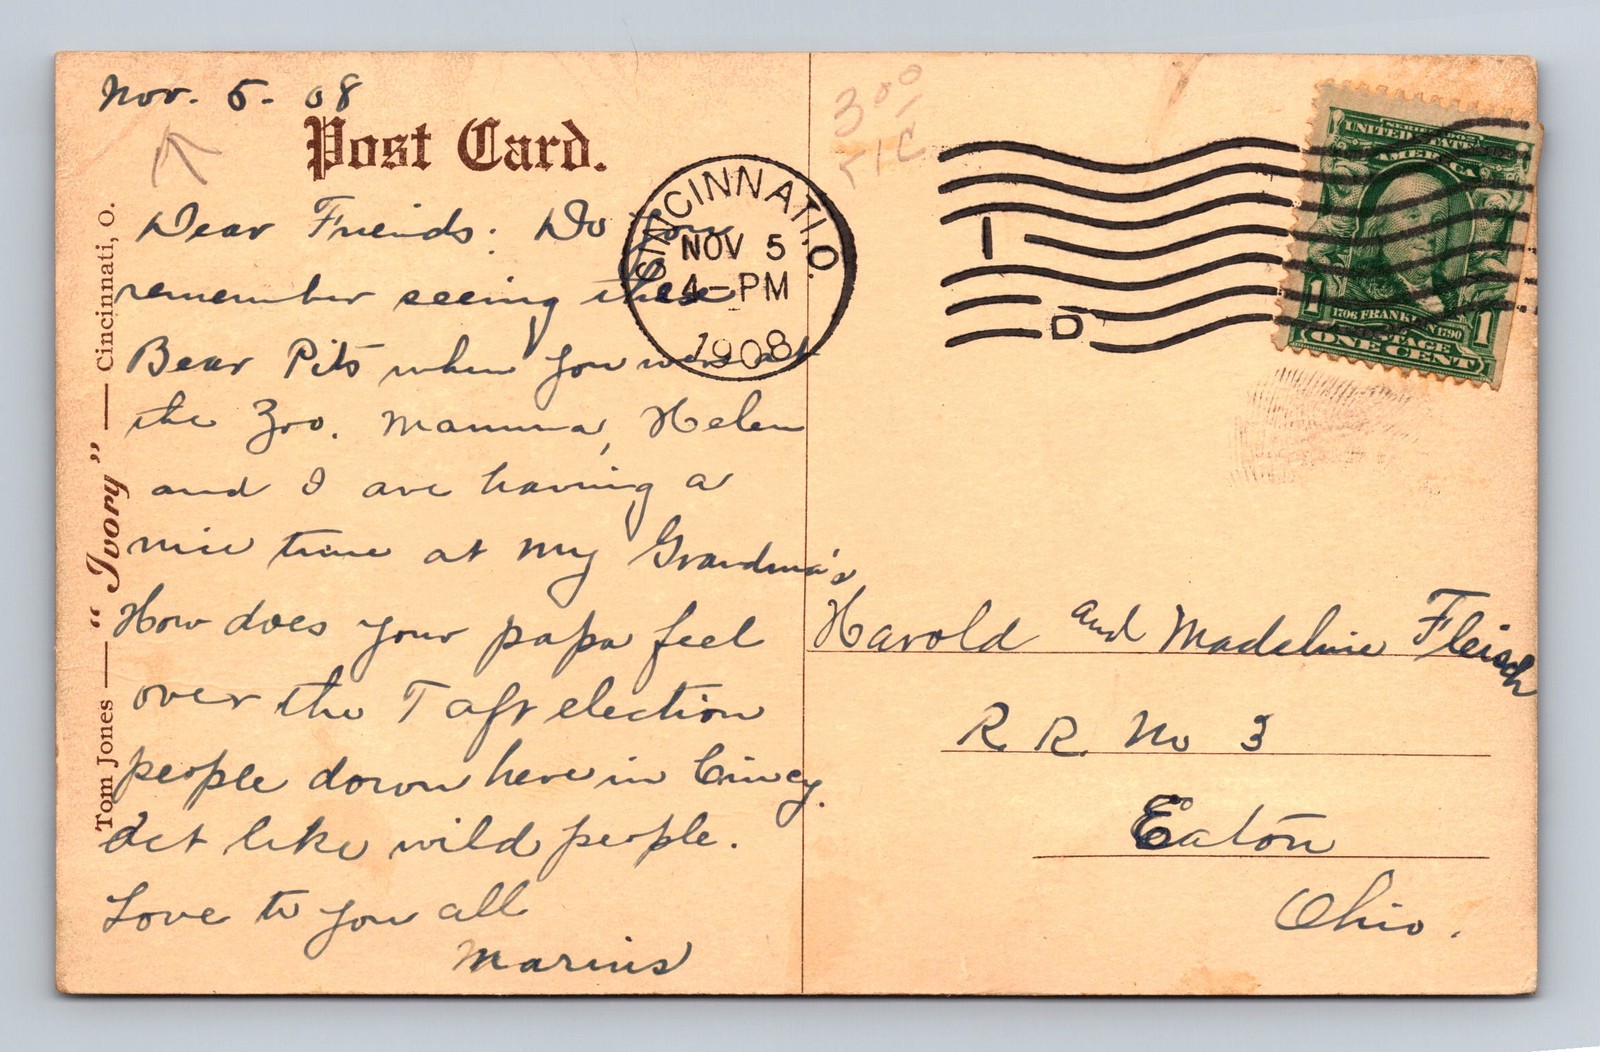 Nov. 5 - 08
Post Card.
Dear Friends: Do you
remember seeing these
Bear Pits when you were at
the Zoo. Mamma, Helen
and I are having a
nice time at my Grandma's
How does your papa feel
over the Taft election
people down here in Cincy.
act like wild people.
Love to you all
Marius
Tom Jones — "Ivory" — Cincinnati, O.
CINCINNATI, O.
NOV 5
4-PM
1908
3 00
1
D
SERIES 1902
UNITED STATES
AMERICA
1 1706 FRANKLIN 1790 1
POSTAGE
ONE CENT
Harold and Madeline Fleisch
R. R. No 3
Eaton
Ohio.